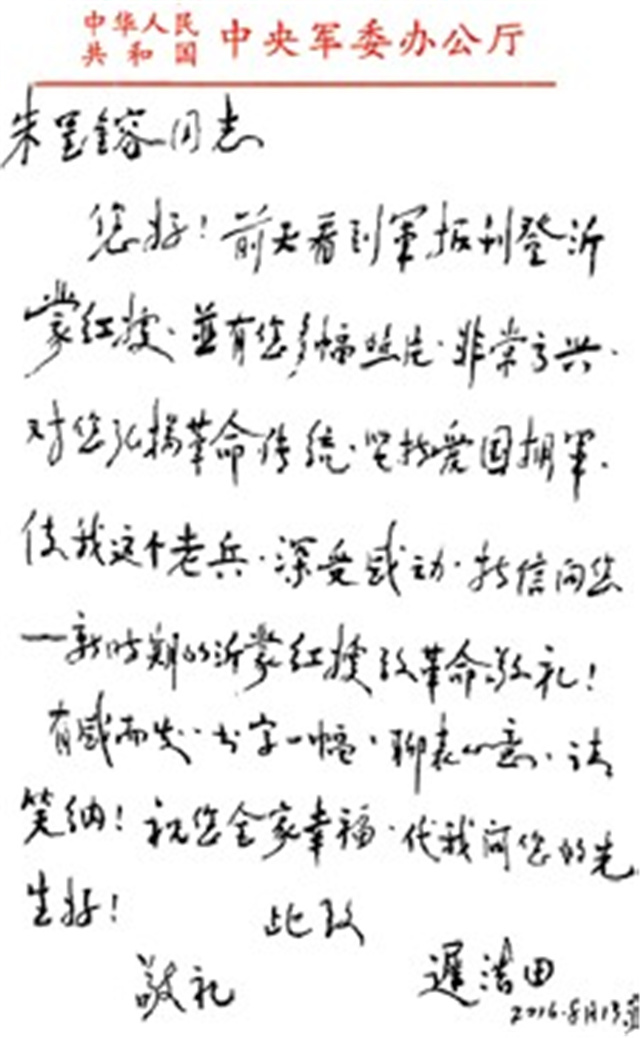 中华人民
共和国 中央军委办公厅
朱呈镕同志
您好！前天看到军报刊登沂
蒙红嫂·並有您多幅照片·非常高兴·
对您弘扬革命传统·坚持爱国拥军·
使我这个老兵·深受感动·持信向您
—新时期的沂蒙红嫂致革命敬礼！
有感而发·书字一幅·聊表心意·请
笑纳！祝您全家幸福·代我问您的先
生好！ 此致
敬礼 迟浩田
2016.8月13日